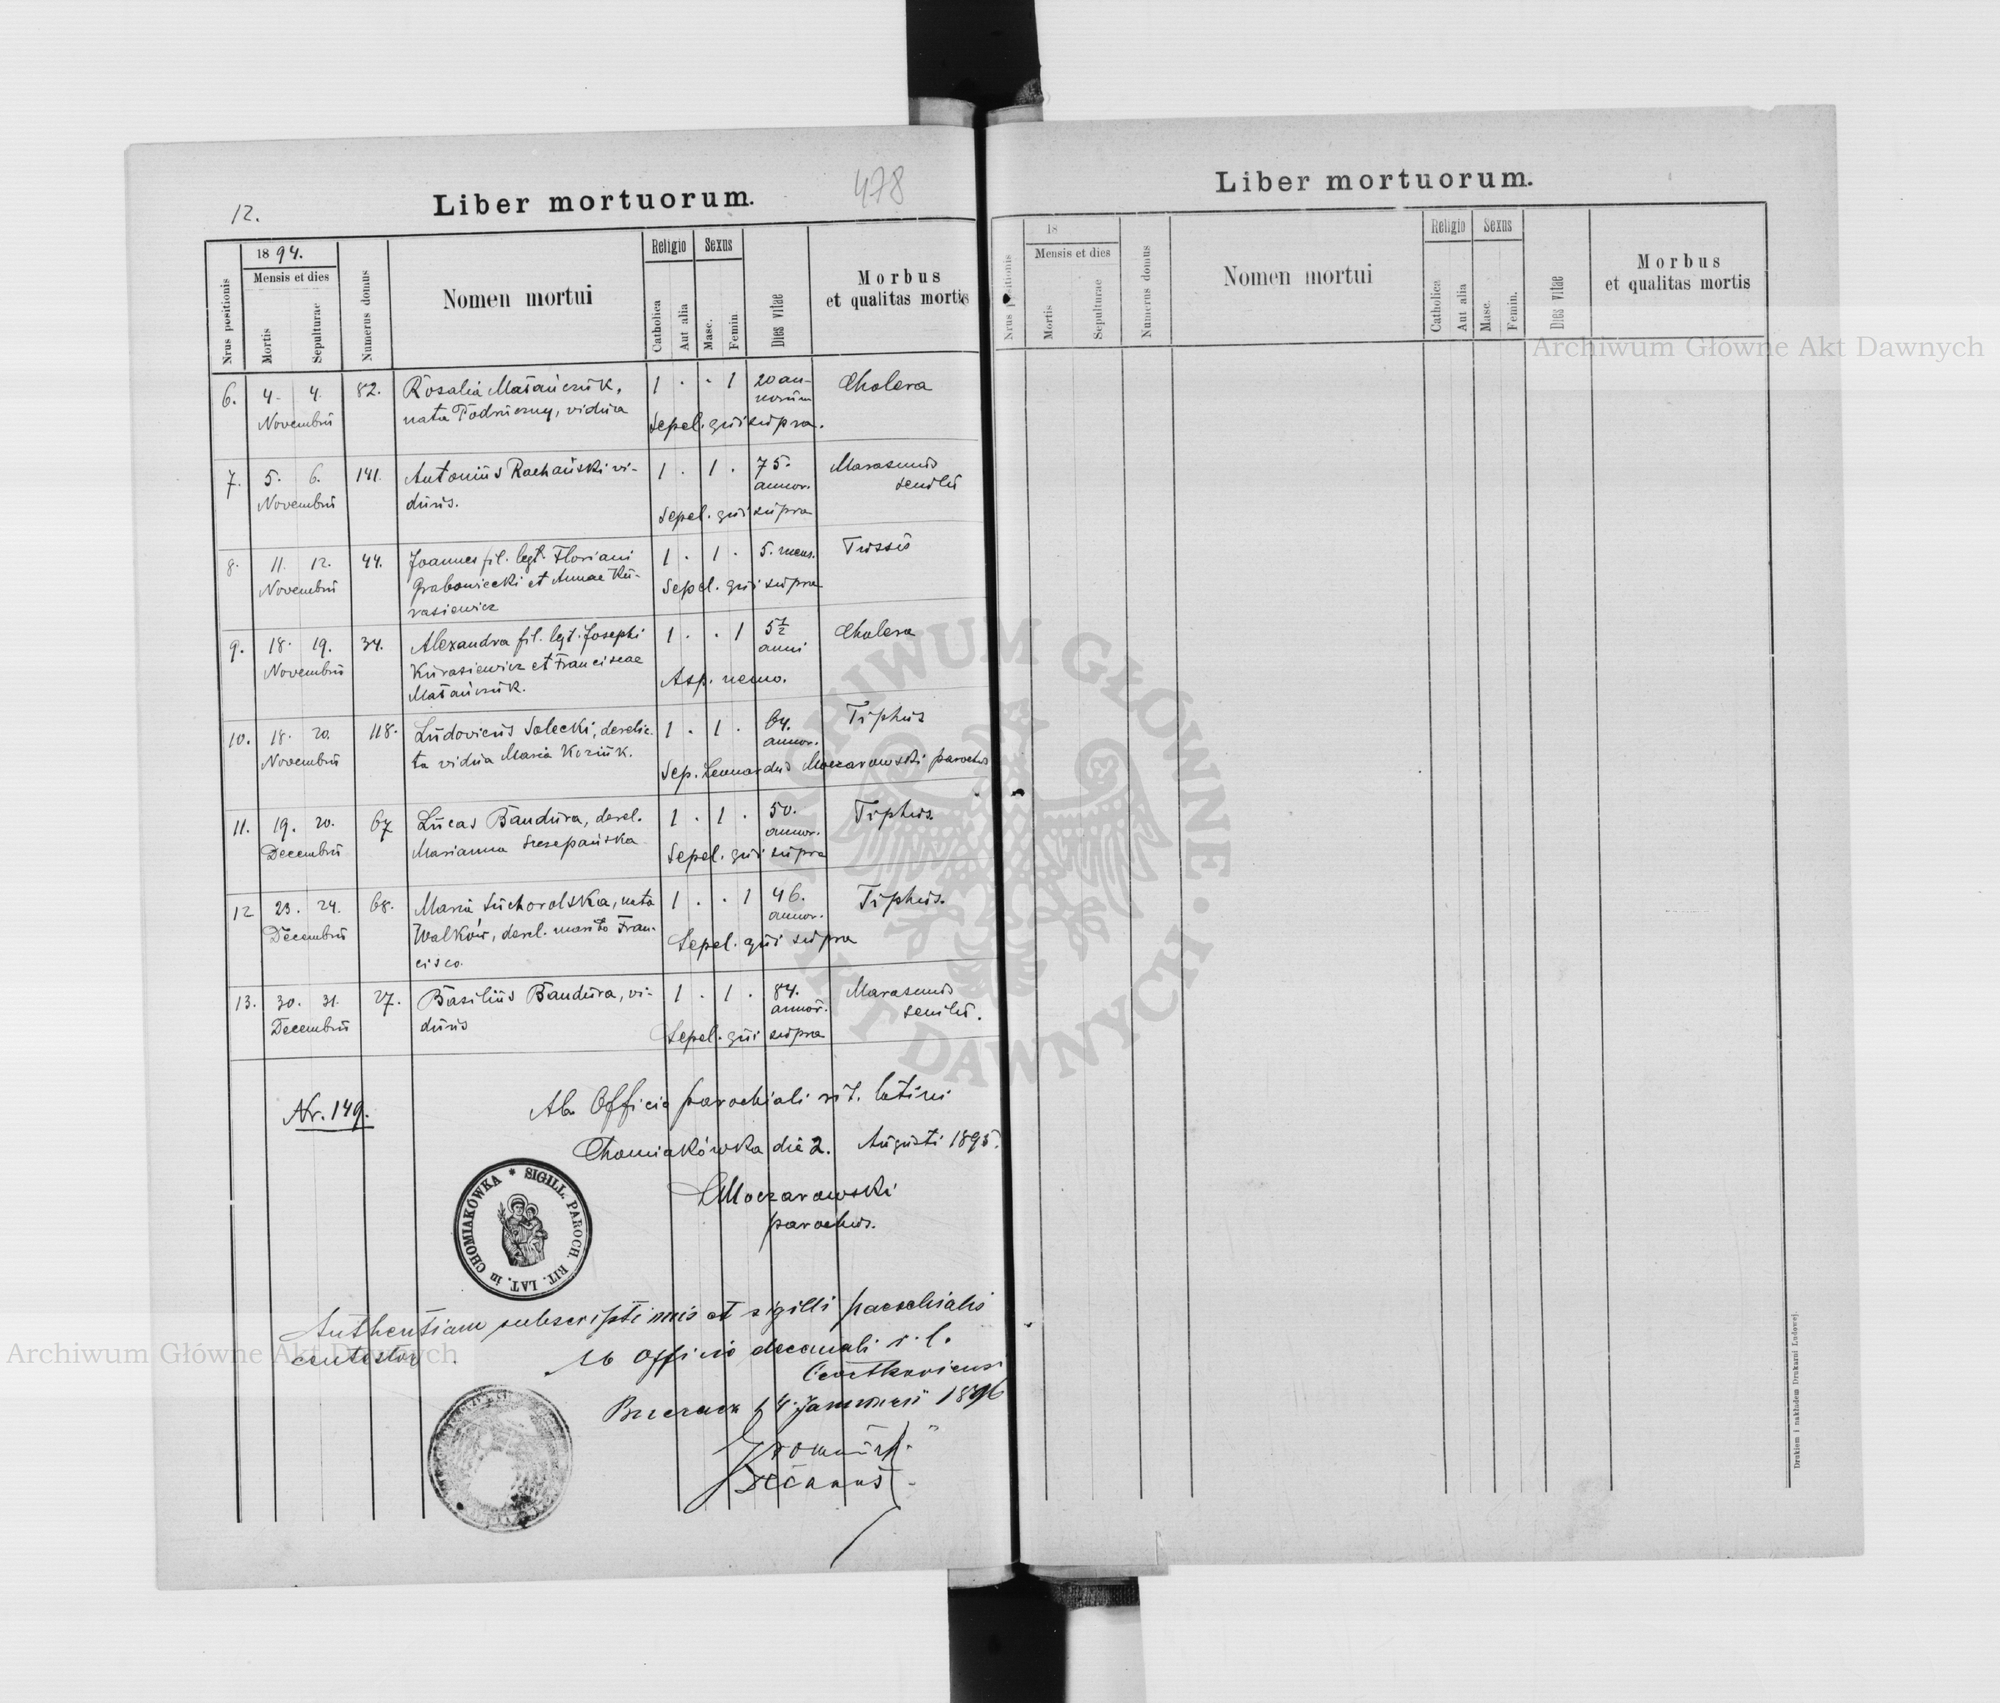 12.
Liber mortuorum.
478
Nrus positionis
1894.
Mensis et dies
Mortis
Sepulturae
Numerus domus
Nomen mortui
Religio
Catholica
Aut alia
Sexus
Masc.
Femin.
Dies vitae
Morbus
et qualitas mortis
6. 4. 4. 82. Rosalia Małańczuk, 1 . . 1 20 an- Cholera
Novembris nata Podruczny, vidua norum
Sepel. qui supra.
7. 5. 6. 141. Antonius Rachański vi- 1 . 1 . 75. Marasmus
Novembris duus. annor. senilis
Sepel. qui supra
8. 11. 12. 44. Joannes fil. legt. Floriani 1 . 1 . 5. mens. Tussis
Novembris Grabowiecki et Annae Ku- Sepel. qui supra
rasiewicz
9. 18. 19. 34. Alexandra fil. legt. Josephi 1 . . 1 5½ Cholera
Novembris Kurasiewicz et Franciscae anni
Małańczuk. Asp. nemo.
10. 18. 20. 118. Ludovicus Solecki, derelic- 1 . 1 . 64. Tiphus
Novembris ta vidua Maria Koziuk. annor.
Sep. Leonardus Moczarowski parochus
11. 19. 20. 67 Lucas Bandura, derel. 1 . 1 . 50. Tiphus.
Decembris Marianna Szczepańska annor.
Sepel. qui supra
12 23. 24. 68. Maria Suchorolska, nata 1 . . 1 46. Tiphus.
Decembris Walków, derel. marito Fran- annor.
cisco. Sepel. qui supra
13. 30. 31. 27. Basilius Bandura, vi- 1 . 1 . 84. Marasmus
Decembris duus annor. senilis.
Sepel. qui supra
Nr. 149.
Ab Officio parochiali rit. latini
Chomiakówka die 2. Augusti 1895.
LMoczarowski
parochus.
* SIGILL. PAROCH. RIT. LAT. in CHOMIAKÓWKA
Authentiam subscriptionis et sigilli parochialis
contestor
Ab Officio decanali r. l.
Czortkoviensi
Buczacz 14. Januarii 1896
Gromnicki
Decanus
Liber mortuorum.
Nrus positionis
18
Mensis et dies
Mortis
Sepulturae
Numerus domus
Nomen mortui
Religio
Catholica
Aut alia
Sexus
Masc.
Femin.
Dies vitae
Morbus
et qualitas mortis
Drukiem i nakładem Drukarni Ludowej.
Archiwum Główne Akt Dawnych
Archiwum Główne Akt Dawnych
ARCHIWUM GŁÓWNE · AKT DAWNYCH ·